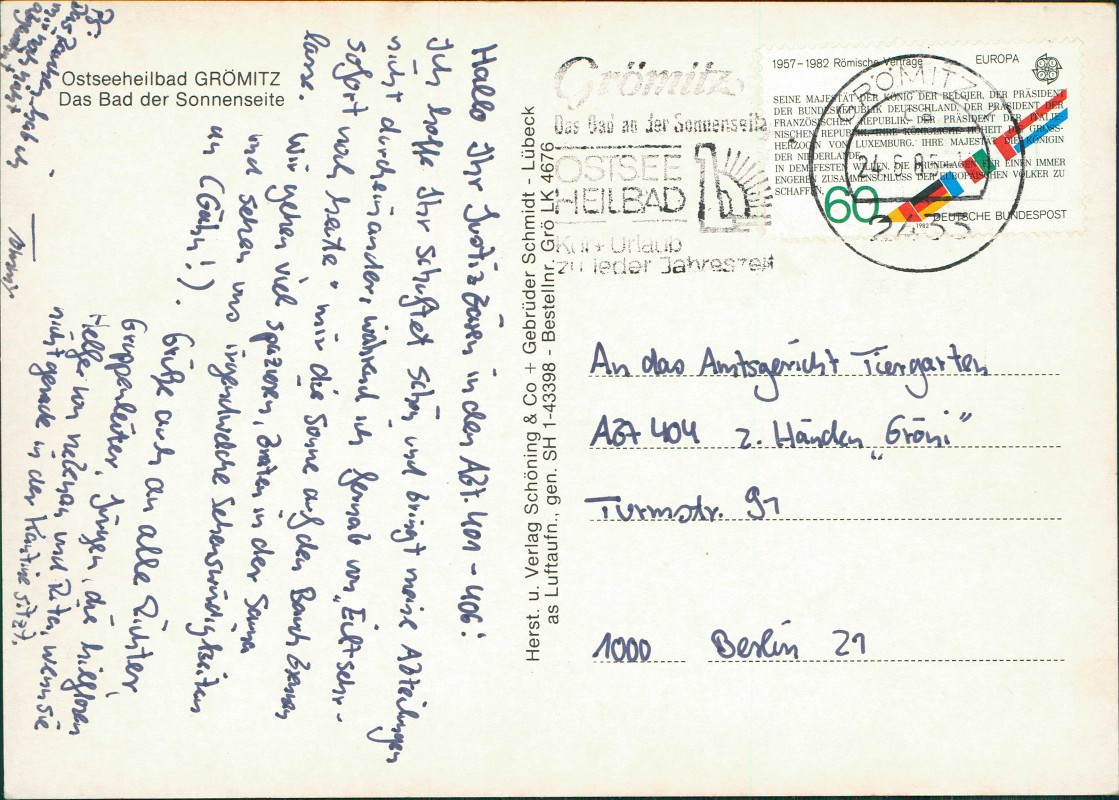 Ostseeheilbad GRÖMITZ
Das Bad der Sonnenseite
Hallo Ihr Justizbären in den Abt. 401 - 406!
Ich hoffe Ihr schuftet schön und bringt meine Abteilungen
nicht durcheinander, während ich fernab von „Eilt sehr -
sofort noch heute" mir die Sonne auf den Bauch brennen
lasse.
Wir gehen viel spazieren, braten in der Sauna
und sehen uns irgendwelche Sehenswürdigkeiten
an (Gähn!).
Grüße auch an alle Richter,
Gruppenleiter, Jürgen, die
Helfer von nebenan und Rita, wenn sie
nicht gerade in der Kantine sitzt.
PS:
Herst. u. Verlag Schöning & Co + Gebrüder Schmidt - Lübeck
as Luftaufn., gen. SH 1-43398 - Bestellnr. Grö LK 4676
Grömitz
Das Bad an der Sonnenseite
OSTSEE
HEILBAD
Kur + Urlaub
zu jeder Jahreszeit
1957-1982 Römische Verträge EUROPA
SEINE MAJESTÄT DER KÖNIG DER BELGIER, DER PRÄSIDENT
DER BUNDESREPUBLIK DEUTSCHLAND, DER PRÄSIDENT DER
FRANZÖSISCHEN REPUBLIK, DER PRÄSIDENT DER ITALIE-
NISCHEN REPUBLIK, IHRE KÖNIGLICHE HOHEIT DIE GROSS-
HERZOGIN VON LUXEMBURG, IHRE MAJESTÄT DIE KÖNIGIN
DER NIEDERLANDE
IN DEM FESTEN WILLEN, DIE GRUNDLAGEN FÜR EINEN IMMER
ENGEREN ZUSAMMENSCHLUSS DER EUROPÄISCHEN VÖLKER ZU
SCHAFFEN,
60
1982
DEUTSCHE BUNDESPOST
GRÖMITZ
2433
An das Amtsgericht Tiergarten
Abt 404 z. Händen „Gröni"
Turmstr. 91
1000 Berlin 21